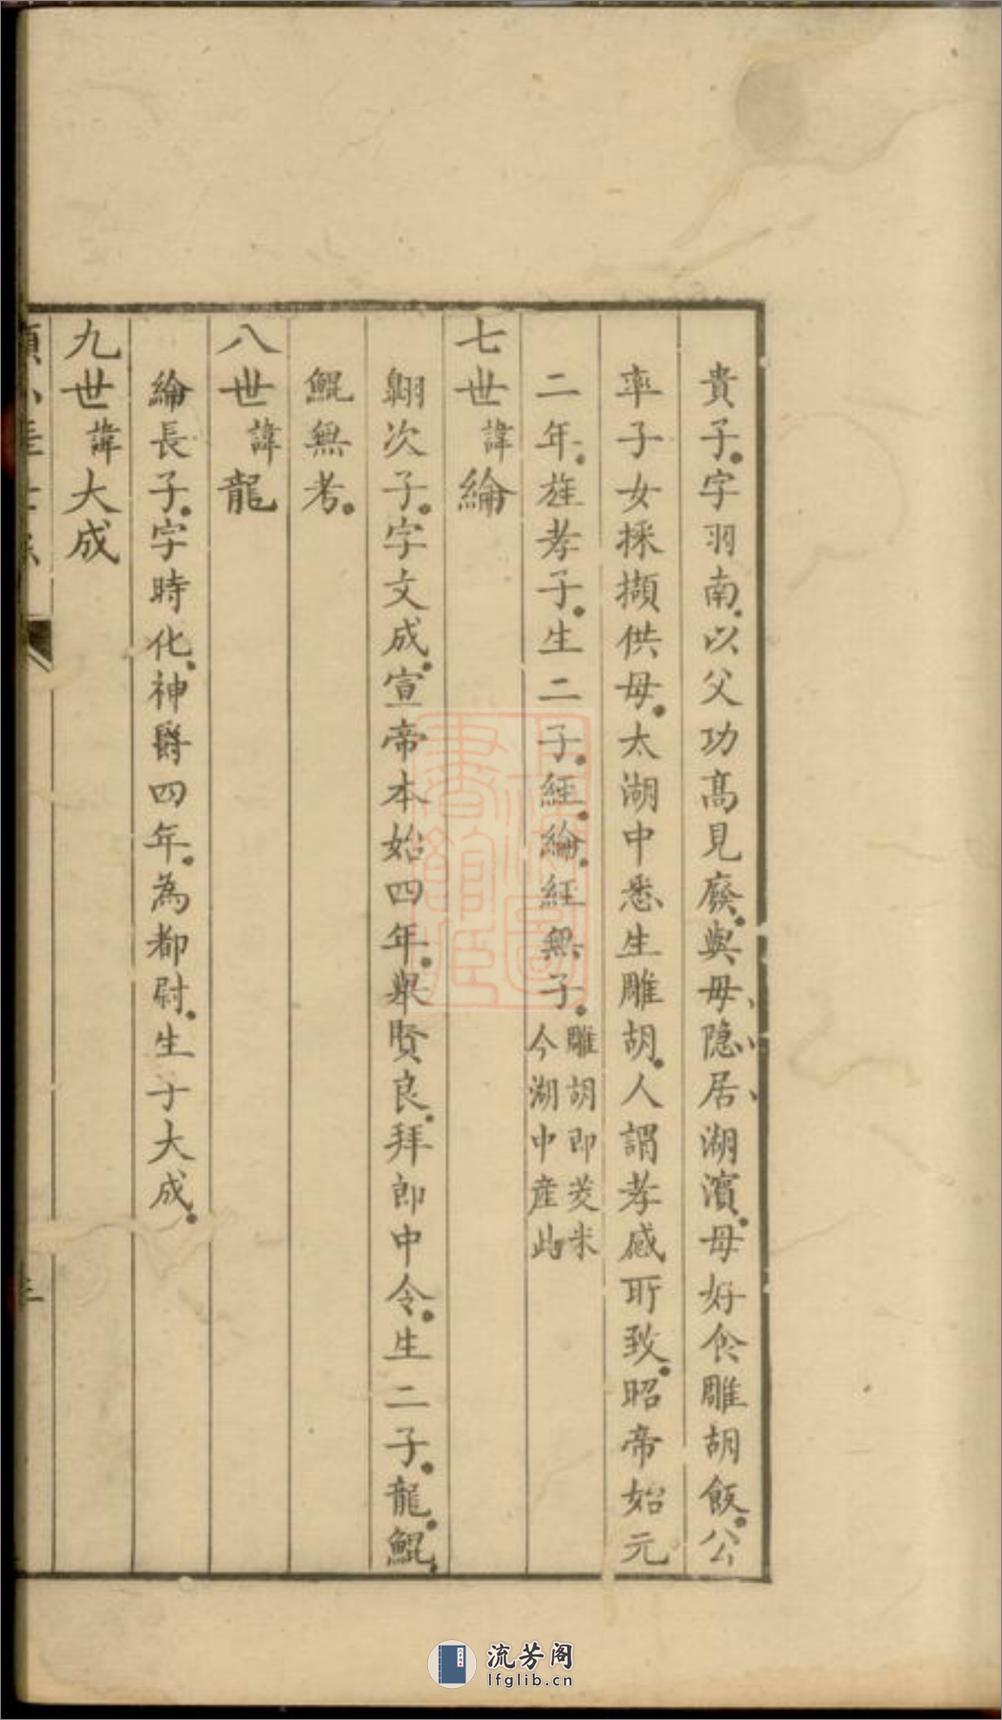 貴子字羽南以父功高見廢與母隐居湖濱母好食雕胡飯公
率子女採擷供母太湖中悉生雕胡人謂孝感所致昭帝始元
二年旌孝子生二子經綸經無子雕胡即茭米
今湖中産此
七世諱綸
翺次子字文成宣帝本始四年舉賢良拜郎中令生二子龍鯤
鯤無考
八世諱龍
綸長子字時化神爵四年為都尉生子大成
九世諱大成
流芳阁
lfglib.cn